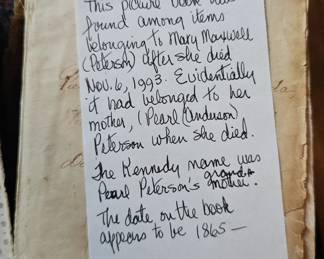 This picture book was
found among items
belonging to Mary Maxwell
(Peterson) after she died
Nov. 6, 1993. Evidentially
it had belonged to her
mother, (Pearl (Anderson)
Peterson when she died.
The Kennedy name was
Pearl Peterson's grand-mother.
The date on the book
appears to be 1865—